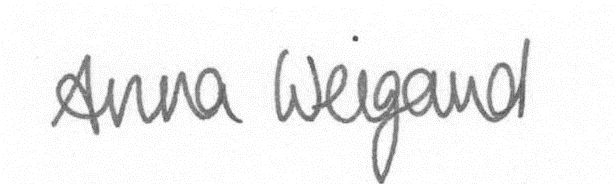 Anna Weigand